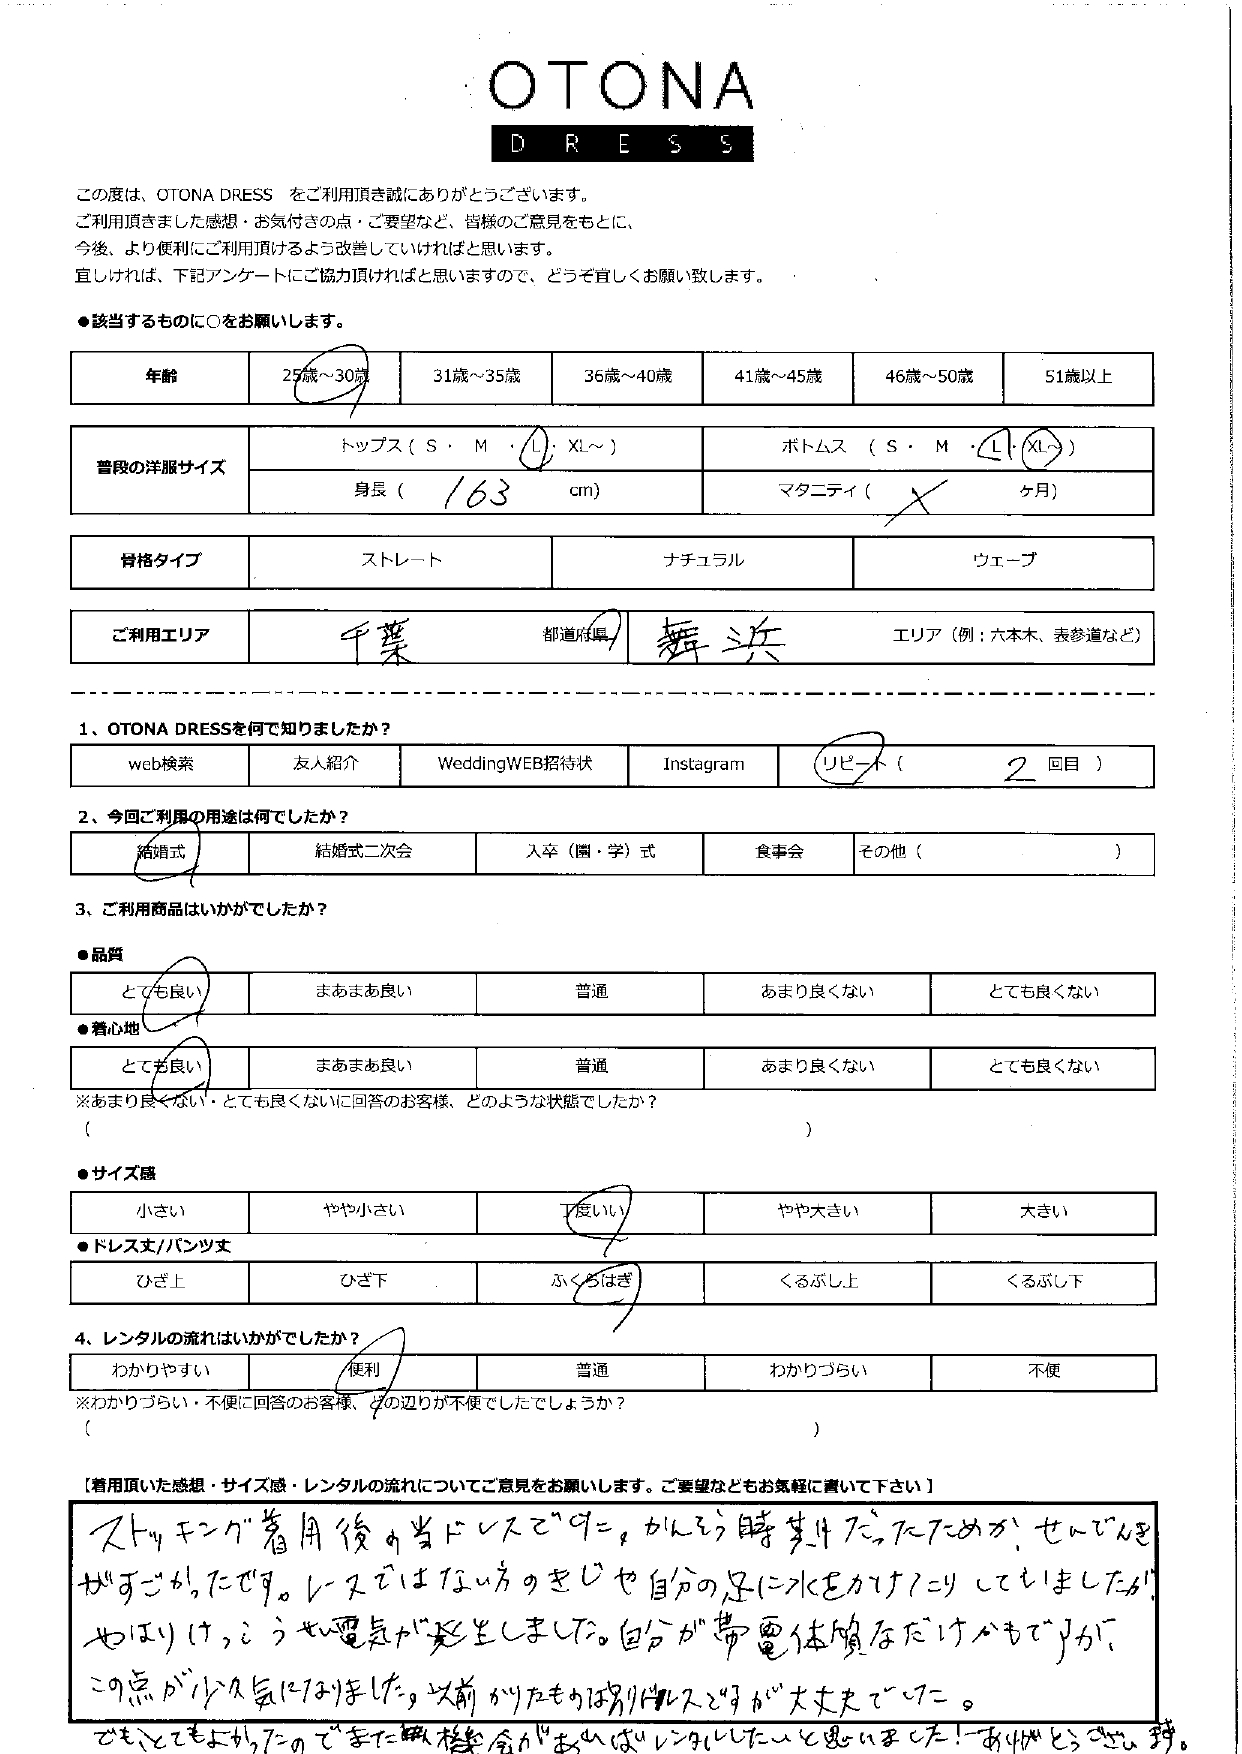 OTONA
DRESS
この度は、OTONA DRESS をご利用頂き誠にありがとうございます。
ご利用頂きました感想・お気付きの点・ご要望など、皆様のご意見をもとに、
今後、より便利にご利用頂けるよう改善していければと思います。
宜しければ、下記アンケートにご協力頂ければと思いますので、どうぞ宜しくお願い致します。
●該当するものに○をお願いします。
年齢 25歳～30歳 31歳～35歳 36歳～40歳 41歳～45歳 46歳～50歳 51歳以上
普段の洋服サイズ トップス ( S ・ M ・ L ・ XL～ ) ボトムス ( S ・ M ・ L ・ XL～ )
身長 ( 163 cm) マタニティ ( ✕ ヶ月)
骨格タイプ ストレート ナチュラル ウェーブ
ご利用エリア 千葉 都道府県 舞浜 エリア（例：六本木、表参道など）
1、OTONA DRESSを何で知りましたか？
web検索 友人紹介 WeddingWEB招待状 Instagram リピート ( 2 回目 )
2、今回ご利用の用途は何でしたか？
結婚式 結婚式二次会 入卒（園・学）式 食事会 その他 ( )
3、ご利用商品はいかがでしたか？
●品質
とても良い まあまあ良い 普通 あまり良くない とても良くない
●着心地
とても良い まあまあ良い 普通 あまり良くない とても良くない
※あまり良くない・とても良くないに回答のお客様、どのような状態でしたか？
( )
●サイズ感
小さい やや小さい 丁度いい やや大きい 大きい
●ドレス丈/パンツ丈
ひざ上 ひざ下 ふくらはぎ くるぶし上 くるぶし下
4、レンタルの流れはいかがでしたか？
わかりやすい 便利 普通 わかりづらい 不便
※わかりづらい・不便に回答のお客様、どの辺りが不便でしたでしょうか？
( )
【着用頂いた感想・サイズ感・レンタルの流れについてご意見をお願いします。ご要望などもお気軽に書いて下さい】
ストッキング着用後の当ドレスでした。かんそう時期だったためか、せいでんき
がすごかったです。レースではない方のきじや自分の足に水をかけたりしていましたが、
やはりけっこうせい電気が発生しました。自分が帯電体質なだけかもですが、
この点が少々気になりました。以前かりたものは別ドレスですが大丈夫でした。
でも、とてもよかったのでまた機会があればレンタルしたいと思いました！ありがとうございます。